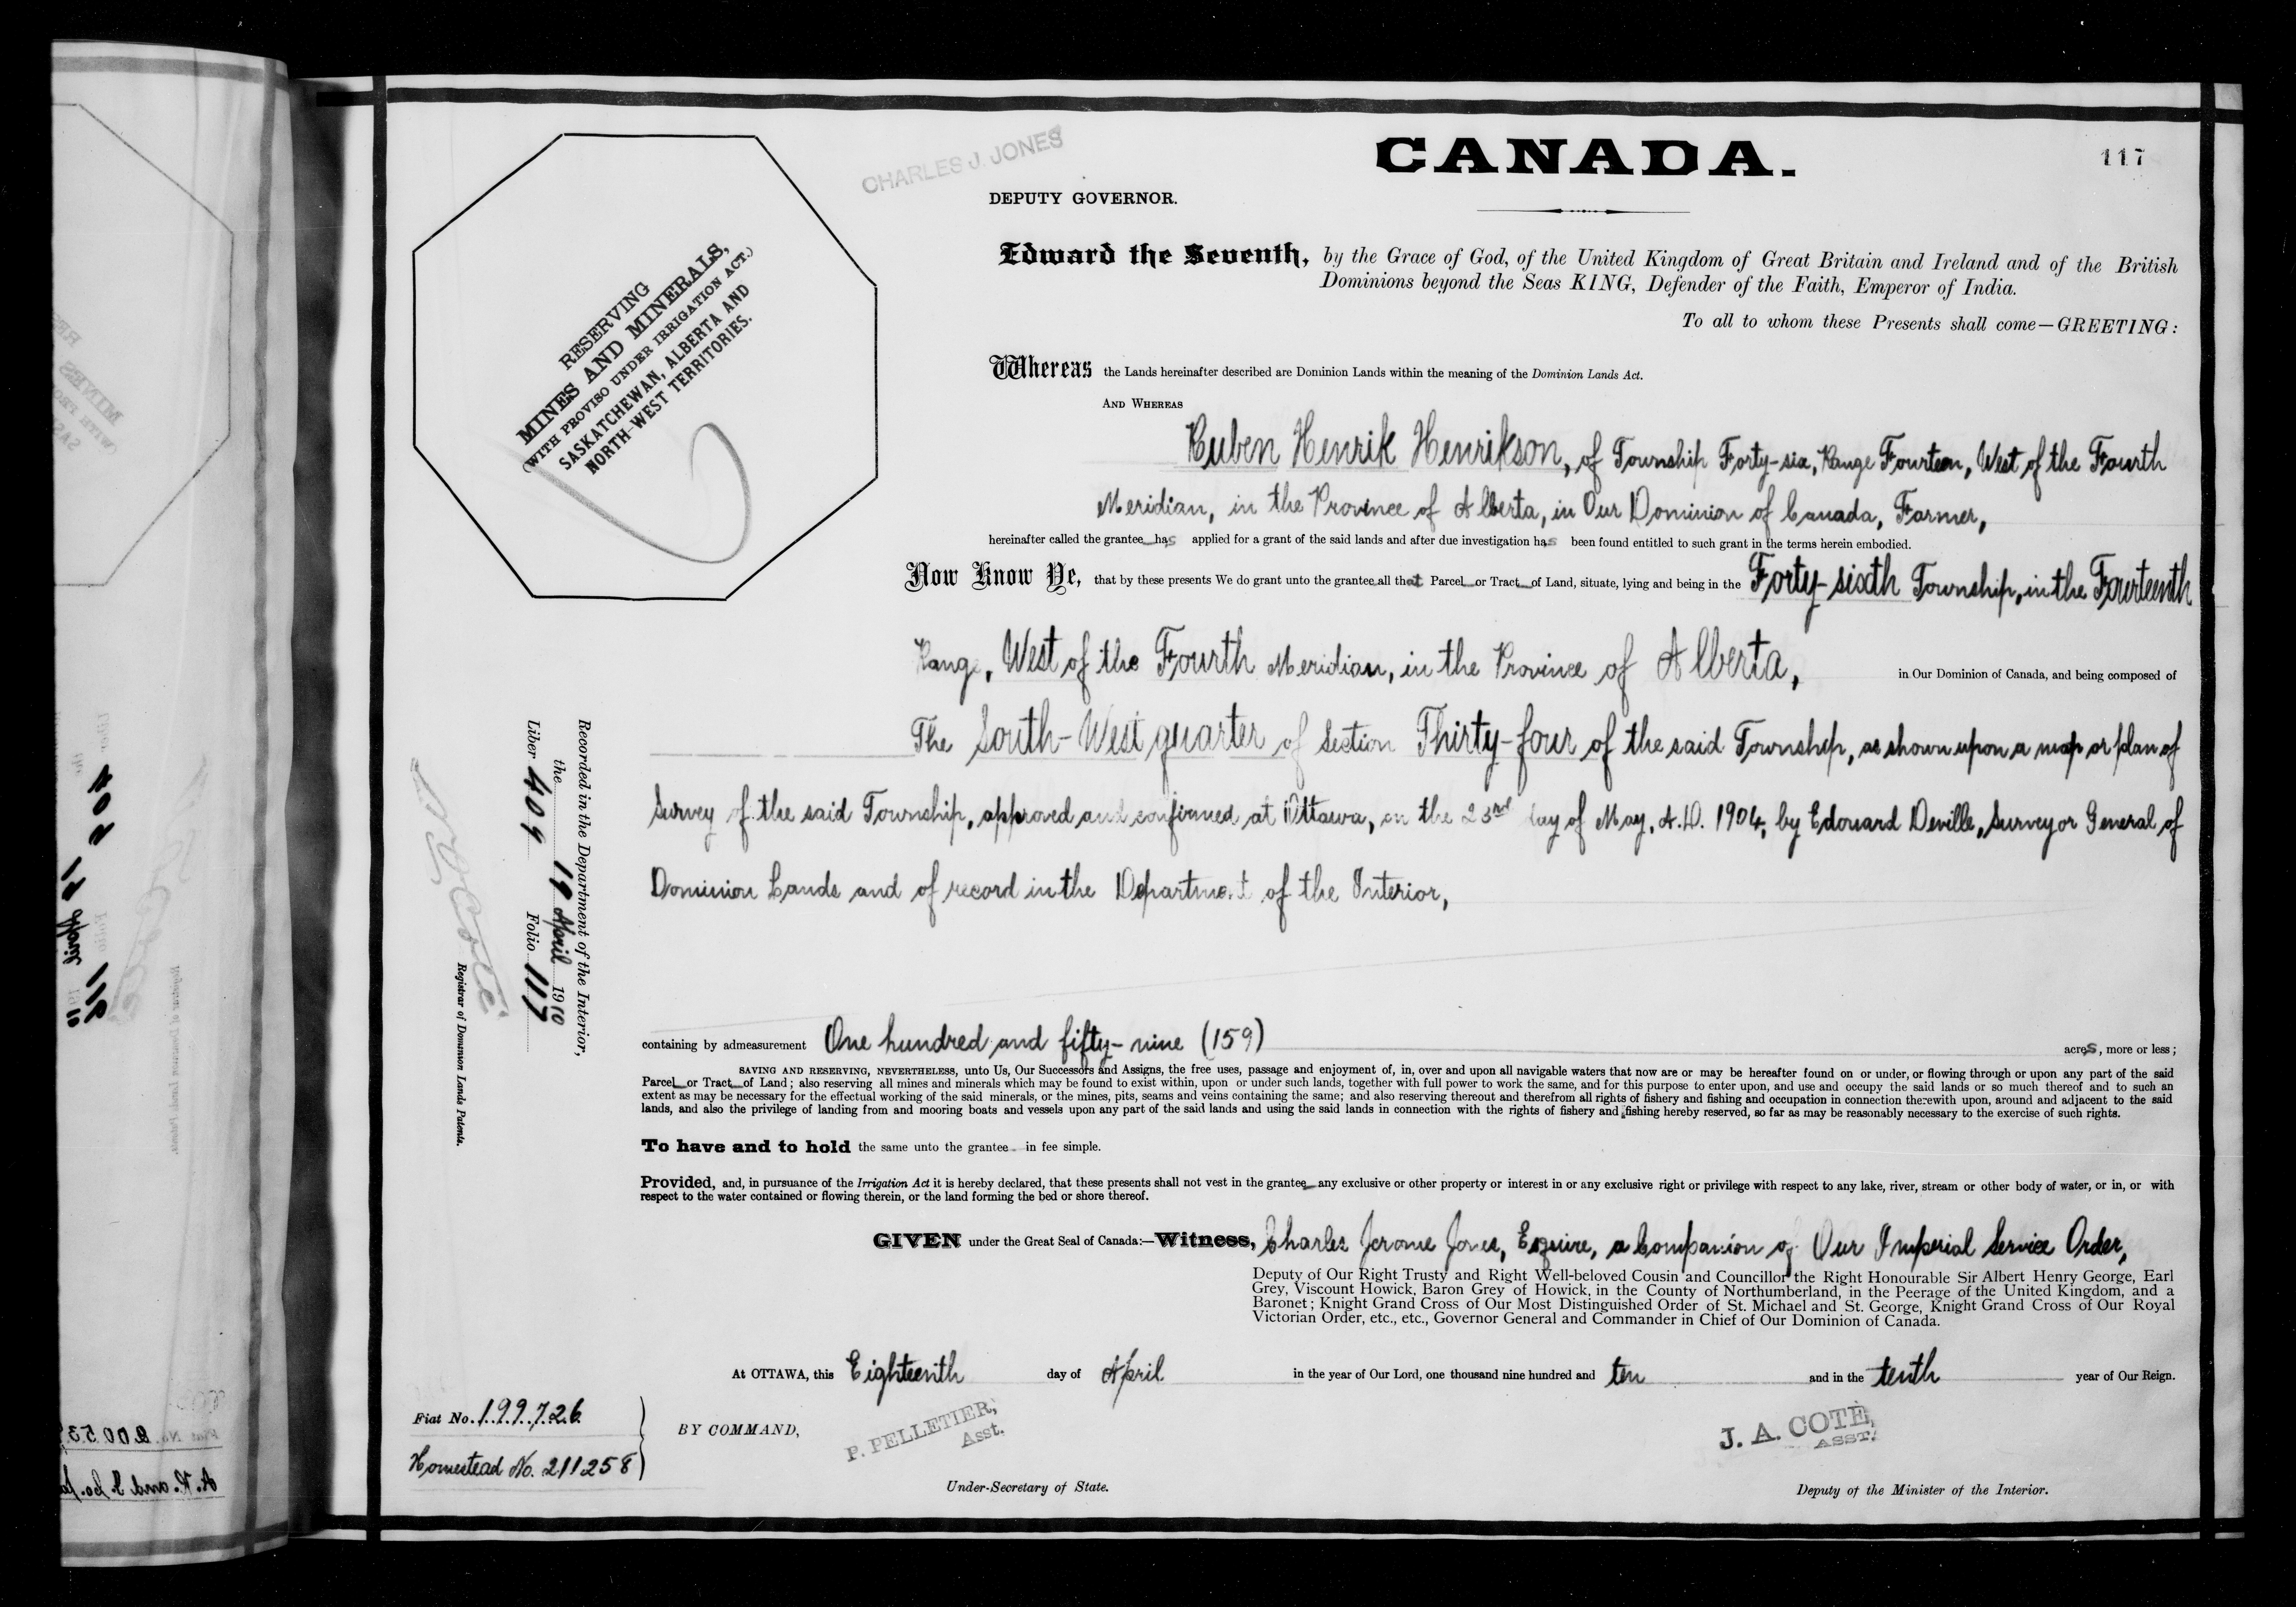 CANADA.
117
CHARLES J. JONES
DEPUTY GOVERNOR.
RESERVING
MINES AND MINERALS,
(WITH PROVISO UNDER IRRIGATION ACT.)
SASKATCHEWAN, ALBERTA AND
NORTH-WEST TERRITORIES.
Edward the Seventh, by the Grace of God, of the United Kingdom of Great Britain and Ireland and of the British
Dominions beyond the Seas KING, Defender of the Faith, Emperor of India.
To all to whom these Presents shall come—GREETING:
Whereas the Lands hereinafter described are Dominion Lands within the meaning of the Dominion Lands Act.
AND WHEREAS
Ruben Henrik Henrikson, of Township Forty-six, Range Fourteen, West of the Fourth
Meridian, in the Province of Alberta, in Our Dominion of Canada, Farmer,
hereinafter called the grantee has applied for a grant of the said lands and after due investigation has been found entitled to such grant in the terms herein embodied.
Now Know Ye, that by these presents We do grant unto the grantee all that Parcel or Tract of Land, situate, lying and being in the Forty-sixth Township, in the Fourteenth
Range, West of the Fourth Meridian, in the Province of Alberta, in Our Dominion of Canada, and being composed of
The South-West quarter of Section Thirty-four of the said Township, as shown upon a map or plan of
Survey of the said Township, approved and confirmed at Ottawa, on the 23rd day of May, A.D. 1904, by Edouard Deville, Surveyor General of
Dominion Lands and of record in the Department of the Interior,
containing by admeasurement One hundred and fifty-nine (159) acres, more or less;
SAVING AND RESERVING, NEVERTHELESS, unto Us, Our Successors and Assigns, the free uses, passage and enjoyment of, in, over and upon all navigable waters that now are or may be hereafter found on or under, or flowing through or upon any part of the said
Parcel or Tract of Land; also reserving all mines and minerals which may be found to exist within, upon or under such lands, together with full power to work the same, and for this purpose to enter upon, and use and occupy the said lands or so much thereof and to such an
extent as may be necessary for the effectual working of the said minerals, or the mines, pits, seams and veins containing the same; and also reserving thereout and therefrom all rights of fishery and fishing and occupation in connection therewith upon, around and adjacent to the said
lands, and also the privilege of landing from and mooring boats and vessels upon any part of the said lands and using the said lands in connection with the rights of fishery and fishing hereby reserved, so far as may be reasonably necessary to the exercise of such rights.
To have and to hold the same unto the grantee in fee simple.
Provided, and, in pursuance of the Irrigation Act it is hereby declared, that these presents shall not vest in the grantee any exclusive or other property or interest in or any exclusive right or privilege with respect to any lake, river, stream or other body of water, or in, or with
respect to the water contained or flowing therein, or the land forming the bed or shore thereof.
GIVEN under the Great Seal of Canada:—Witness, Charles Jerome Jones, Esquire, a Companion of Our Imperial Service Order,
Deputy of Our Right Trusty and Right Well-beloved Cousin and Councillor the Right Honourable Sir Albert Henry George, Earl
Grey, Viscount Howick, Baron Grey of Howick, in the County of Northumberland, in the Peerage of the United Kingdom, and a
Baronet; Knight Grand Cross of Our Most Distinguished Order of St. Michael and St. George, Knight Grand Cross of Our Royal
Victorian Order, etc., etc., Governor General and Commander in Chief of Our Dominion of Canada.
At OTTAWA, this Eighteenth day of April in the year of Our Lord, one thousand nine hundred and ten and in the tenth year of Our Reign.
Fiat No. 199726
Homestead No. 211258
BY COMMAND,
P. PELLETIER,
Asst.
Under-Secretary of State.
J. A. COTÉ,
ASST.
Deputy of the Minister of the Interior.
Recorded in the Department of the Interior,
the 19 April 1910
Liber 409 Folio 117
N O Coté
Registrar of Dominion Lands Patents.